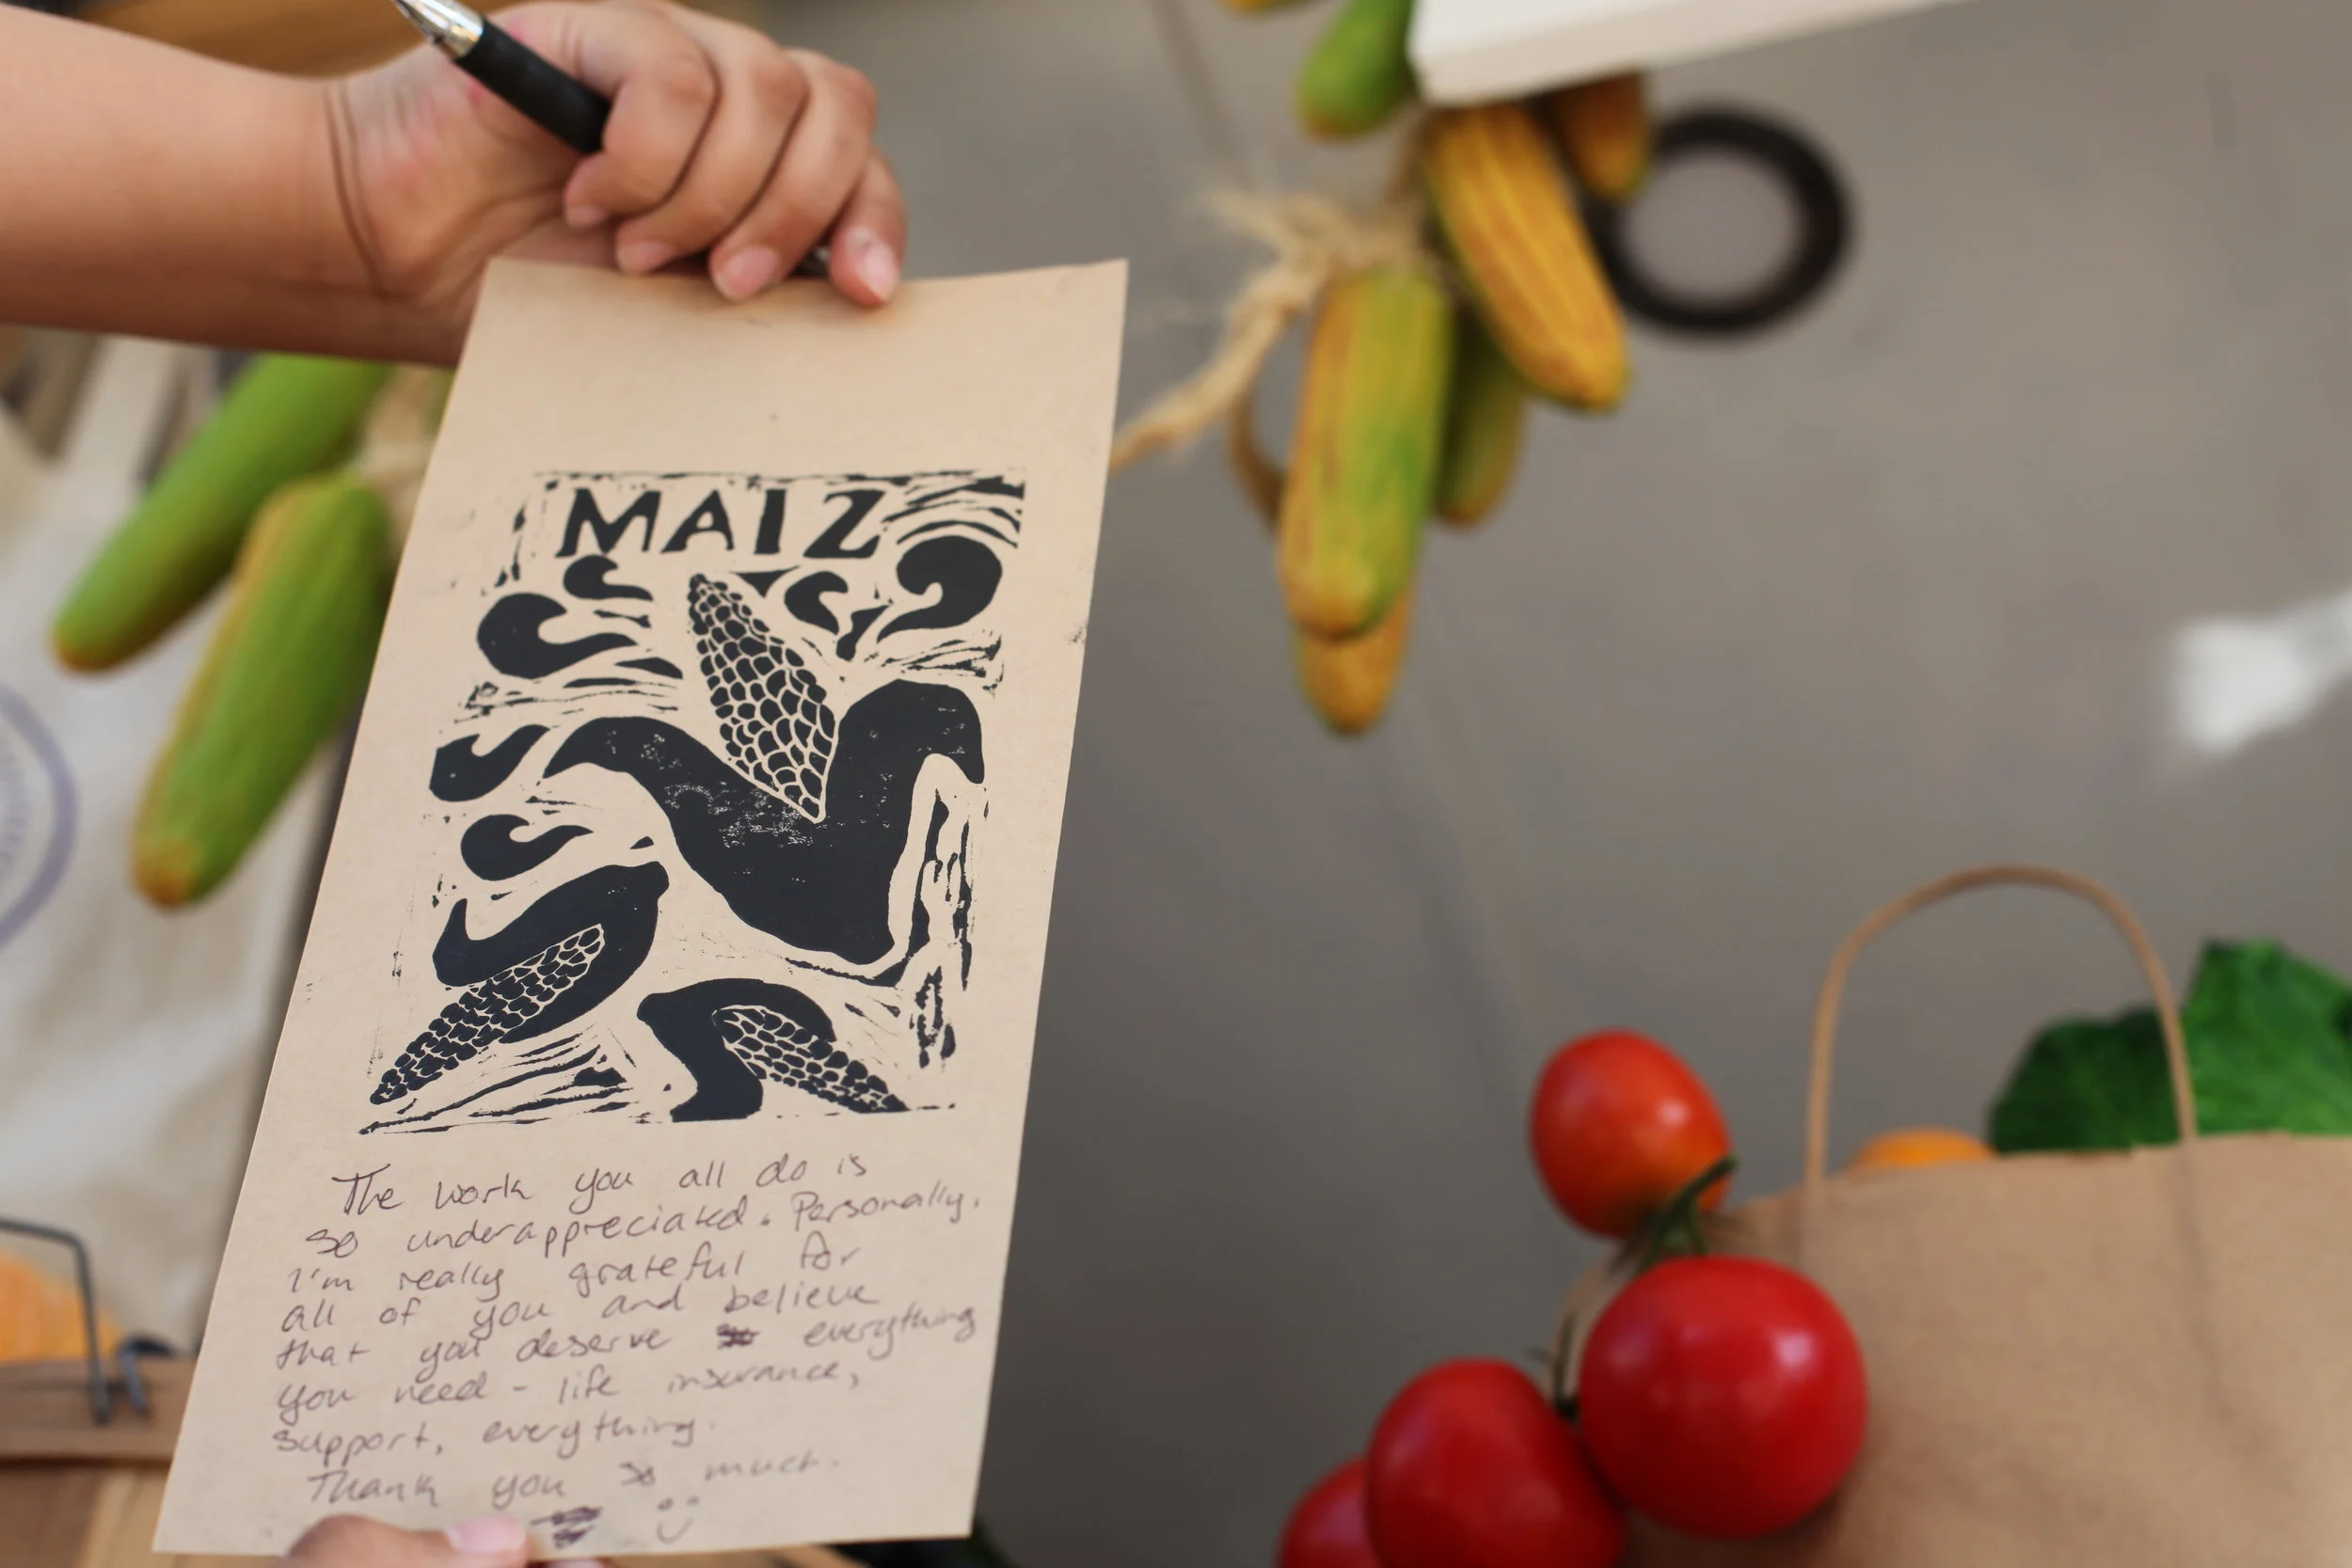 MAIZ
The work you all do is
so underappreciated. Personally,
I'm really grateful for
all of you and believe
that you deserve everything
you need - life insurance,
support, everything.
Thank you so much.